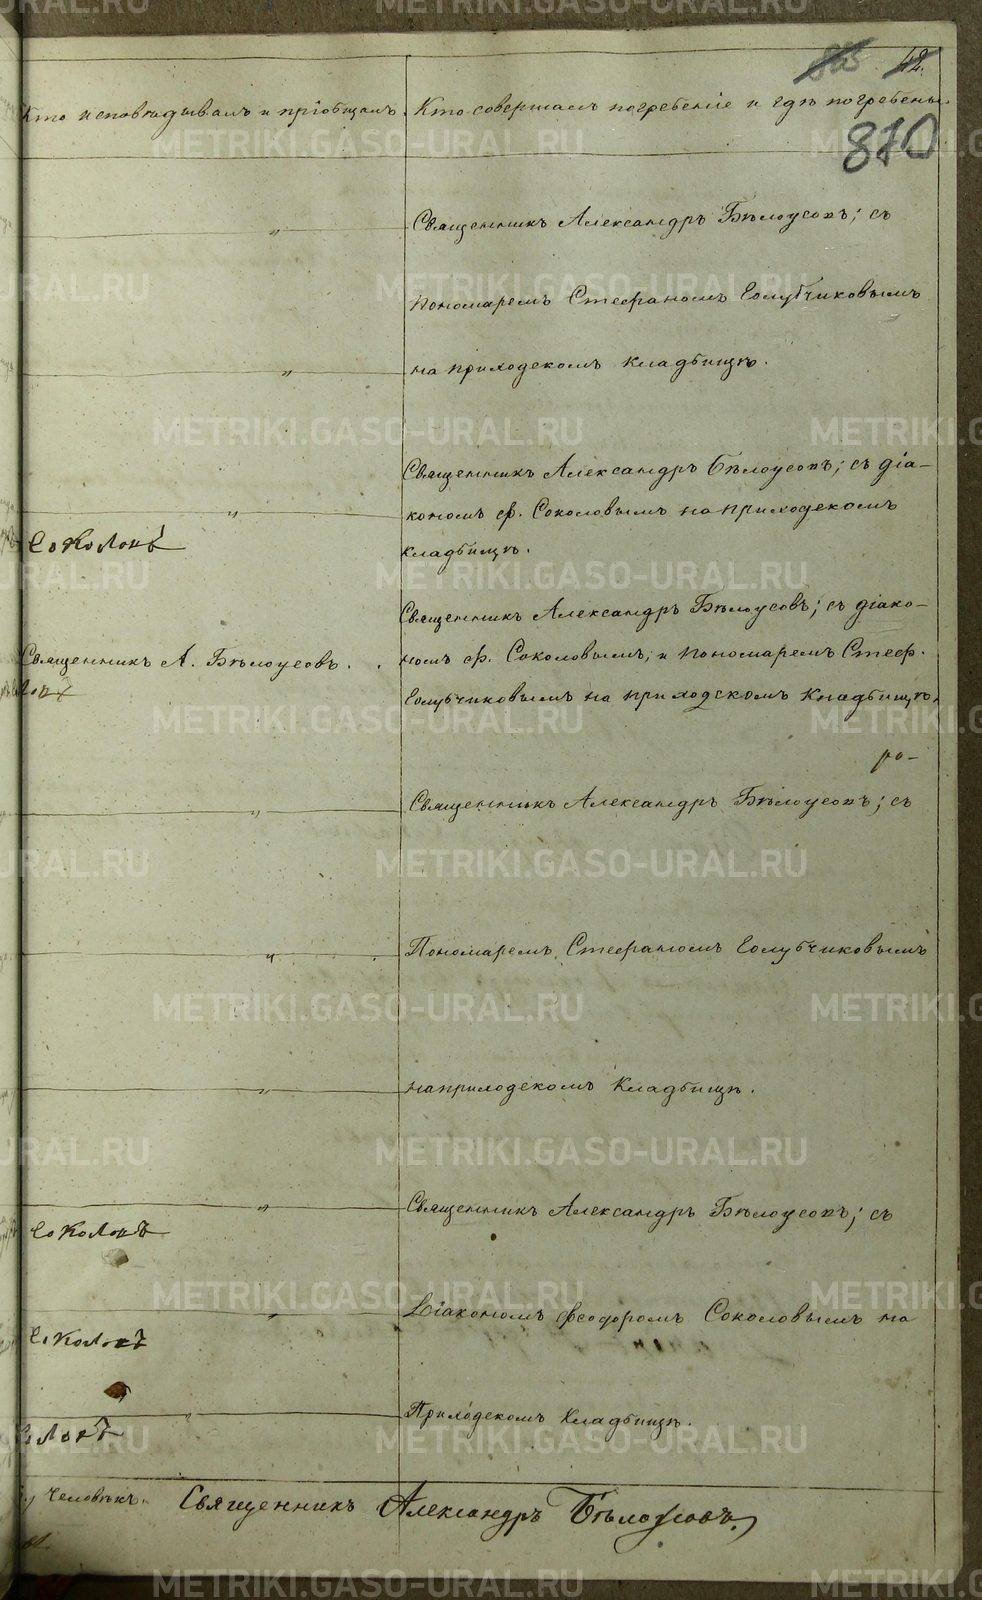 42.
Кто исповѣдывалъ и пріобщалъ. Кто совершалъ погребеніе и гдѣ погребены.
870
Священникъ Александръ Бѣлоусовъ; съ
пономаремъ Стефаномъ Голубчиковымъ
на приходскомъ кладбищѣ.
Священникъ Александръ Бѣлоусовъ; съ діа–
кономъ Ѳ. Соколовымъ на приходскомъ
Соколовъ
кладбищѣ.
Священникъ Александръ Бѣлоусовъ; съ діако–
Священникъ А. Бѣлоусовъ. номъ Ѳ. Соколовымъ, и пономаремъ Стеф.
Голубчиковымъ на приходскомъ кладбищѣ,
ро–
Священникъ Александръ Бѣлоусовъ; съ
Пономаремъ, Стефаномъ Голубчиковымъ
на приходскомъ кладбищѣ.
Священникъ Александръ Бѣлоусовъ; съ
Соколовъ
Діакономъ Ѳеодоромъ Соколовымъ на
Соколовъ
Приходскомъ кладбищѣ.
человѣкъ. Священникъ Александръ Бѣлоусовъ
METRIKI.GASO-URAL.RU